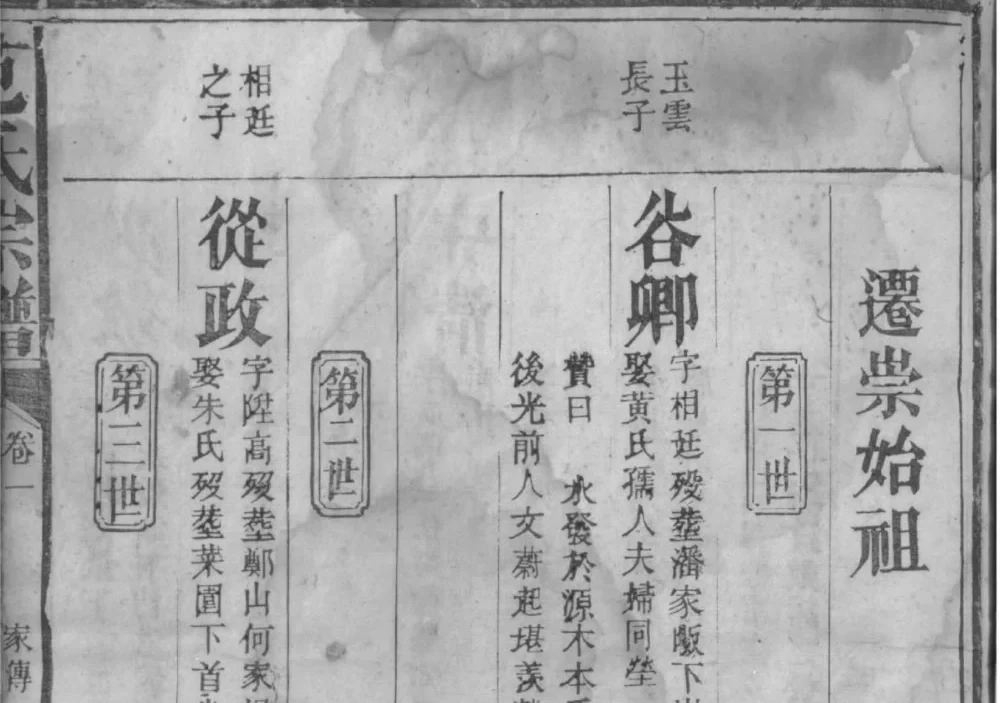 遷崇始祖
第一世
玉雲
長子
谷卿
字相廷歿塟潘家畈下
娶黄氏孺人夫婦同塋
贊曰 水發於源木本
後光前人文蔚起堪羡
第二世
相廷
之子
從政
字陞高歿塟鄭山何家
娶朱氏歿塟菜園下首
第三世
范氏宗譜
卷一
家傳